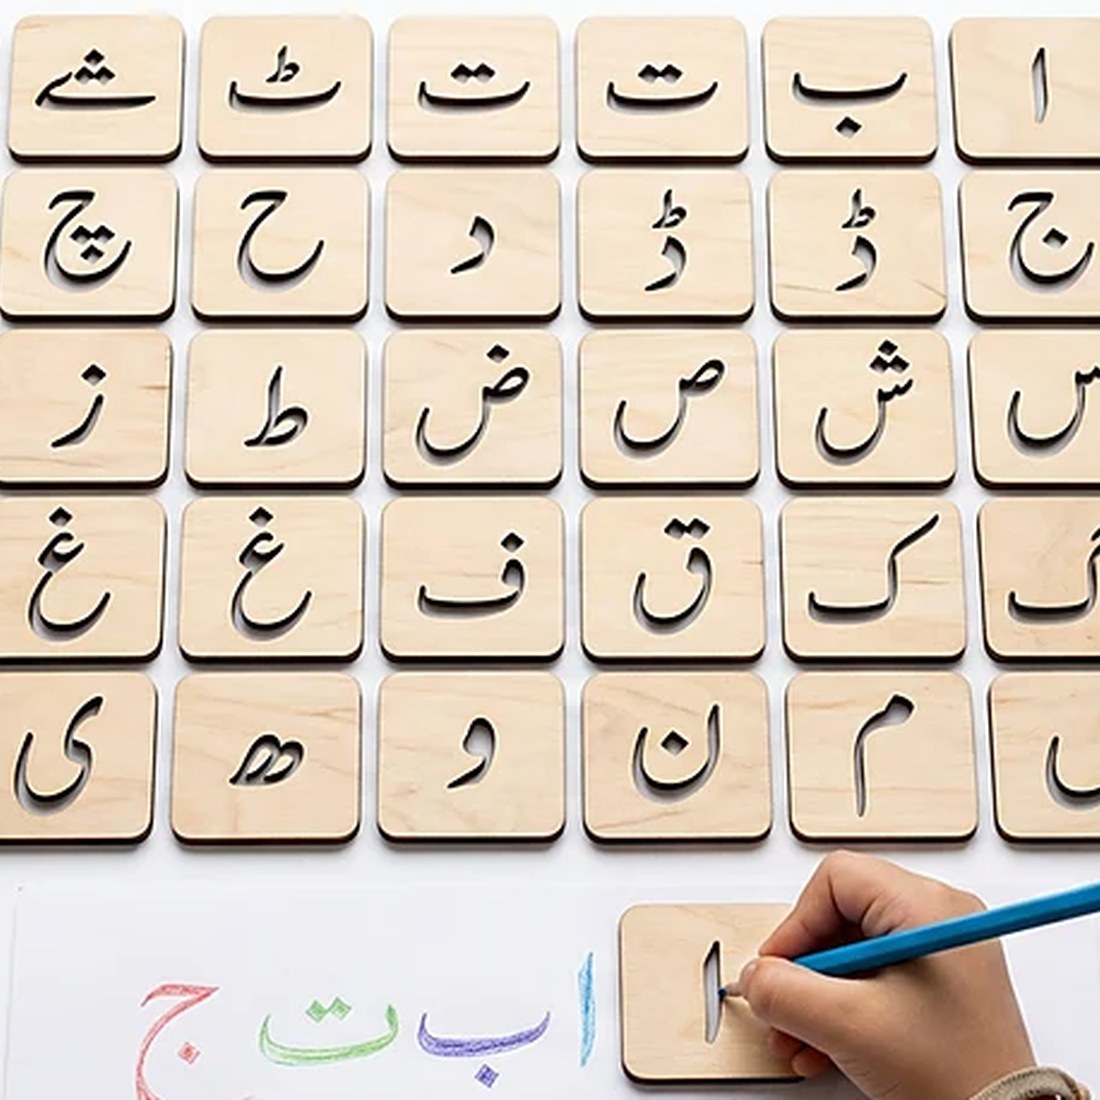 ا ب ت ت ٹ شے
ج ڈ ڈ د ح چ
س ش ص ض ط ز
گ ک ف ق غ غ
ل م ن و ھ ی
ا
ا ب ت ج